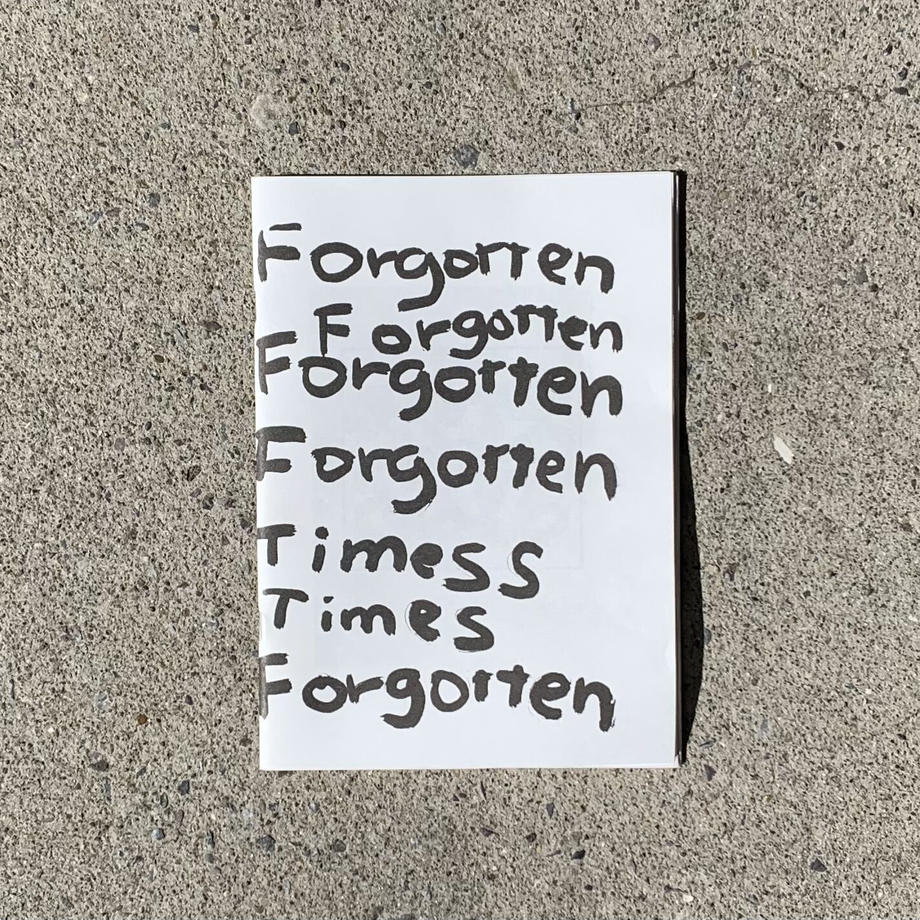 Forgotten
Forgotten
Forgotten
Forgotten
Timess S
Times
Forgotten